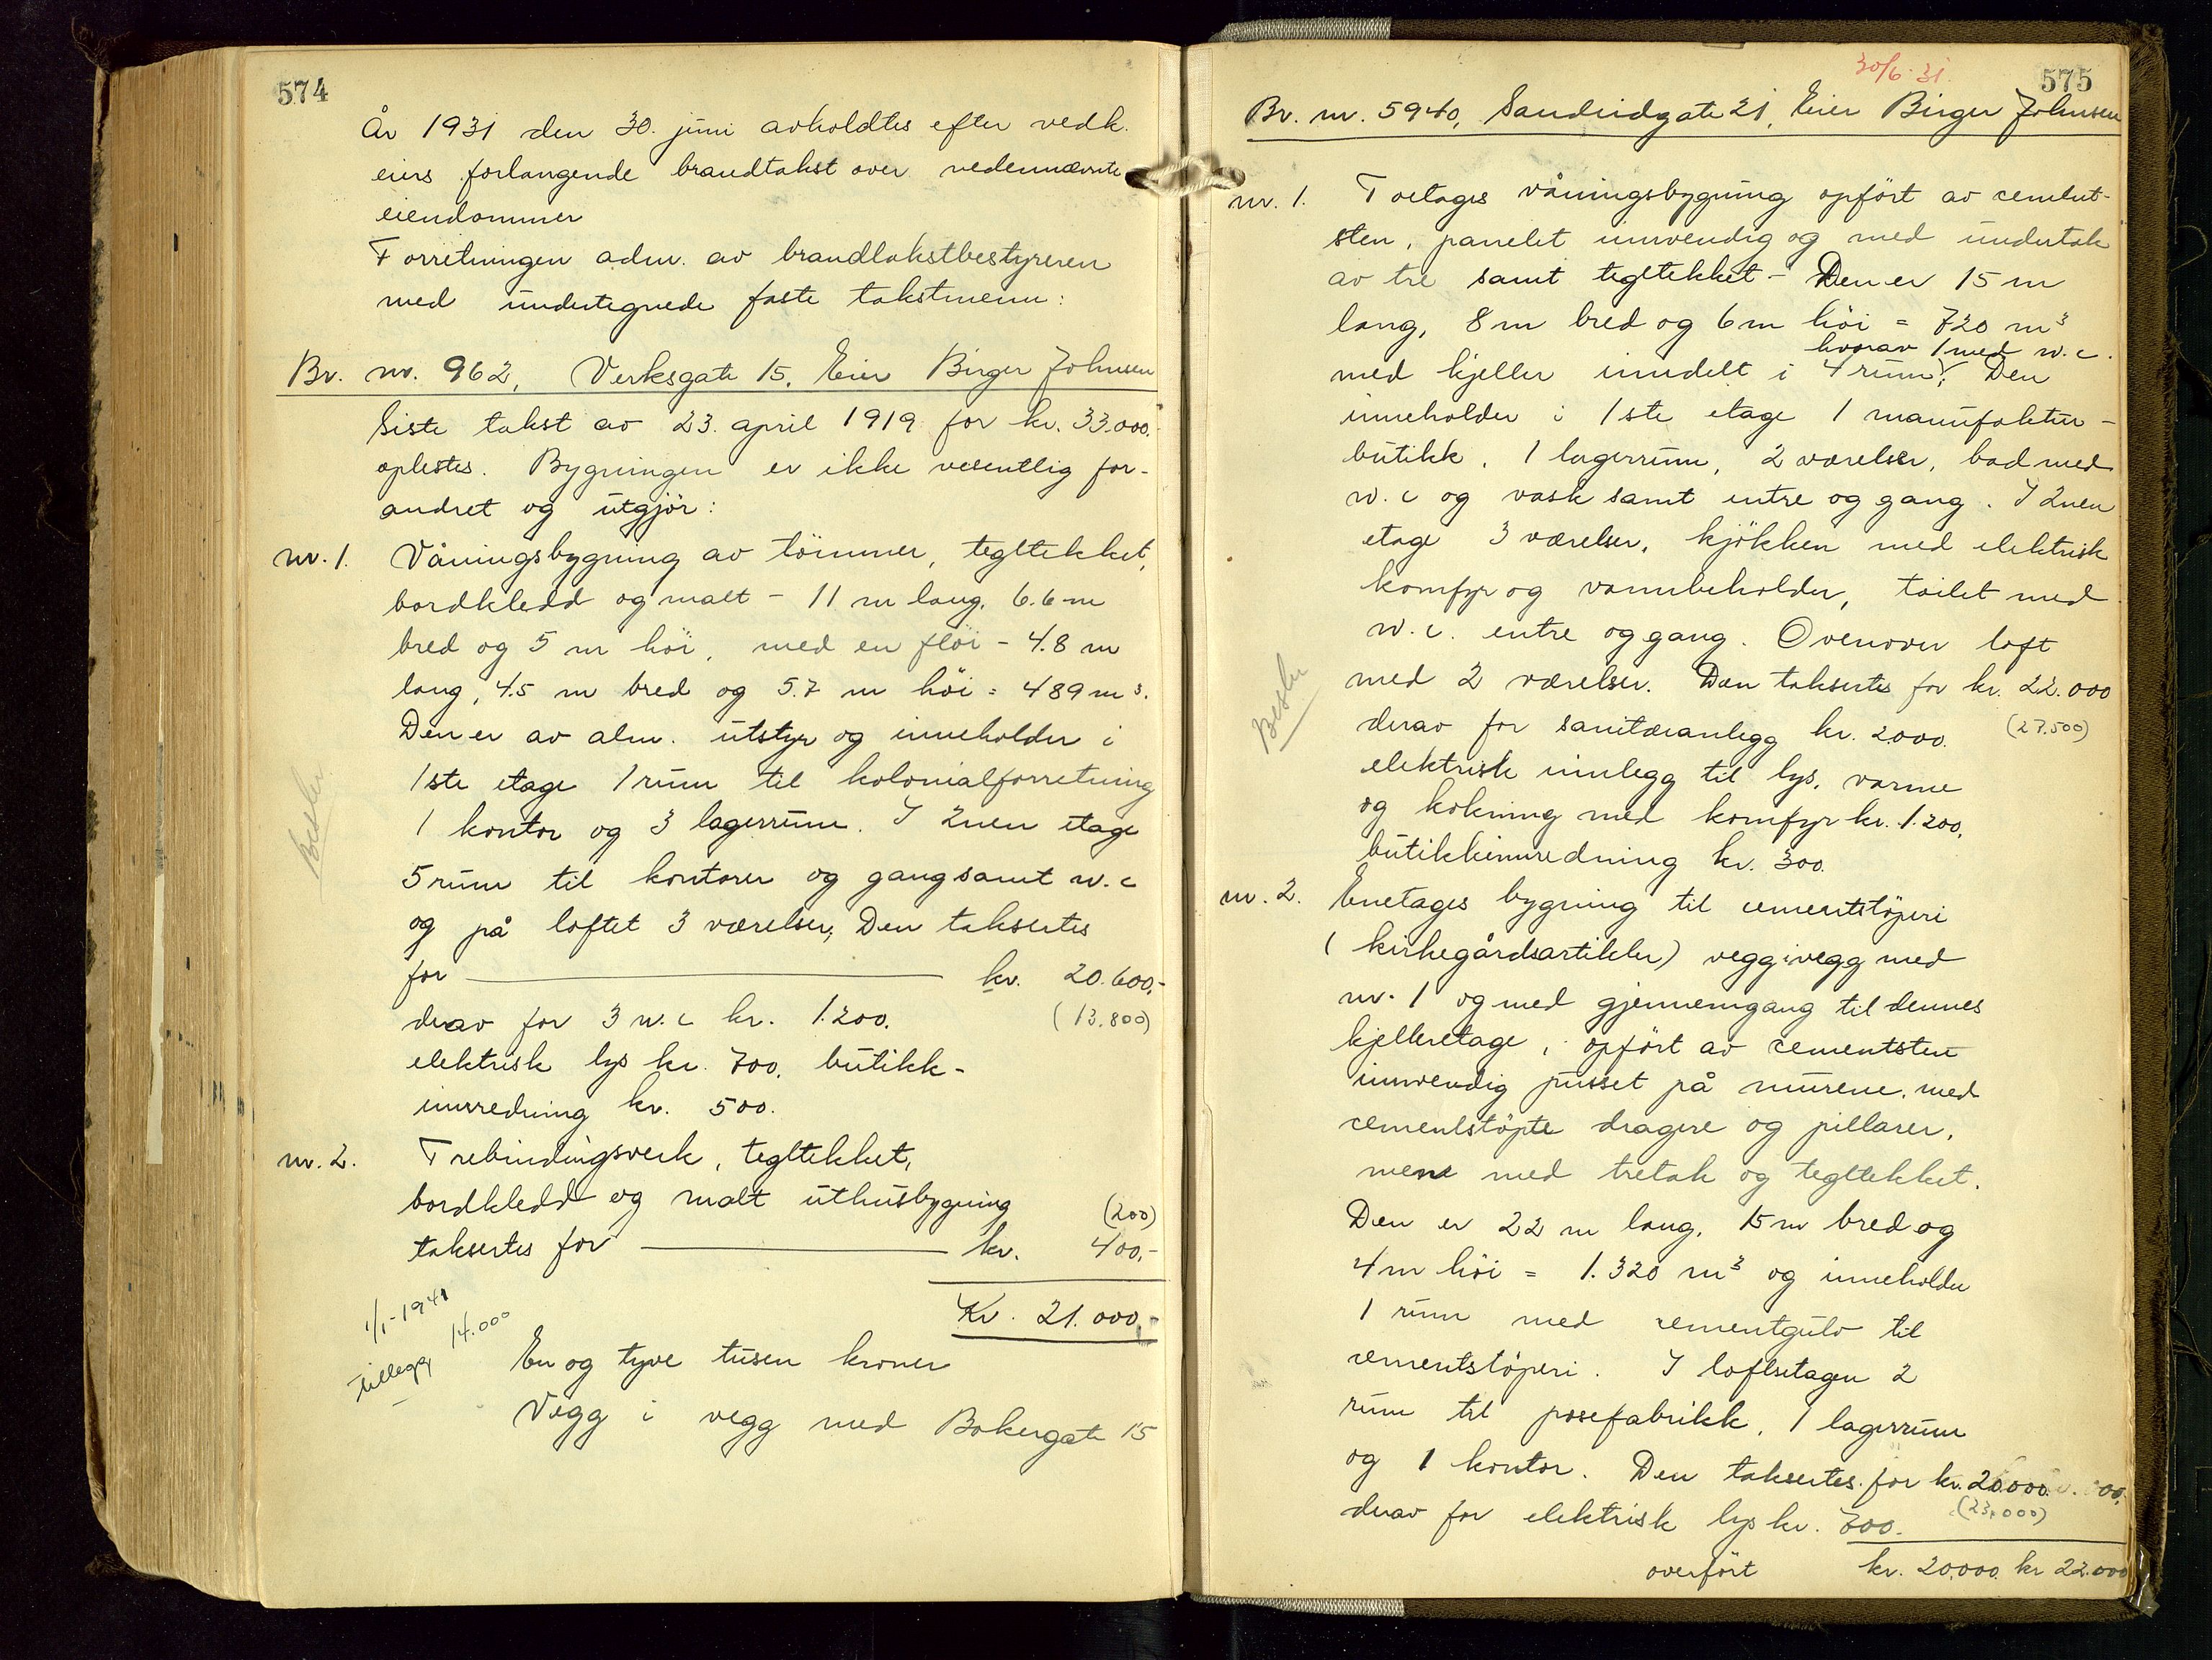 574
År 1931 den 30. juni avholdtes efter vedk.
eiers forlangende brandtakst over nedennævnte
eiendommer
Forretningen adm. av brandtakstbestyreren
med undertegnede faste takstmenn:
Br. nr. 962, Verksgate 15, Eier Birger Johnsen
Siste takst av 23. april 1919 for kr. 33.000.-
oplestes. Bygningen er ikke vesentlig for-
andret og utgjör:
nr. 1. Våningsbygning av tömmer, tegltekket,
bordkledd og malt - 11 m lang, 6.6 m
bred og 5 m höi, med en flöi - 4.8 m
lang, 4.5 m bred og 5.7 m höi = 489 m³.
Den er av alm. utstyr og inneholder i
1ste etage 1 rum til kolonialforretning
1 kontor og 3 lagerrum. I 2nen etage
5 rum til kontorer og gang samt w.c
og på loftet 3 værelser, Den taksertes
for kr. 20.600.-
derav for 3 w.c kr. 1.200. (13.800)
elektrisk lys kr. 700. butikk-
innredning kr. 500.
nr. 2. Trebindingsverk, tegltekket,
bordkledd og malt uthusbygning (200)
taksertes for kr. 400.-
Kr. 21.000.-
1/1-1941
tillegg 14.000
En og tyve tusen kroner
Vegg i vegg med Bakergate 15
30/6 31.
575
Br. nr. 5940, Sandeidgate 21, Eier Birger Johnsen
nr. 1. Toetages våningsbygning opfört av cement-
sten, panelet innvendig og med undertak
av tre samt tegltekket - Den er 15 m
lang, 8 m bred og 6 m höi = 720 m³
hvorav 1 med w.c.
med kjeller inndelt i 4 rum; Den
inneholder i 1ste etage 1 manufaktur-
butikk, 1 lagerrum, 2 værelser, bad med
w.c og vask samt entre og gang. I 2nen
etage 3 værelser, kjökken med elektrisk
komfyr og vannbeholder, toilet med
w.c. entre og gang. Ovenover loft
med 2 værelser. Den taksertes for kr. 22.000
derav for sanitæranlegg kr. 2.000. (27.500)
elektrisk innlegg til lys, varme
og kokning med komfyr kr. 1.200,
butikkinnredning kr. 300.
nr. 2. Enetages bygning til cementstöperi
(kirkegårdsartikler) vegg i vegg med
nr. 1 og med gjennemgang til dennes
kjelleretage, opfört av cementsten
innvendig pusset på murene, med
cementstöpte dragere og pillarer,
mene med tretak og tegltekket.
Den er 22 m lang, 15 m bred og
4 m höi = 1.320 m³ og inneholder
1 rum med cementgulv til
cementstöperi. I loftsetagen 2
rum til posefabrikk, 1 lagerrum
og 1 kontor. Den taksertes for kr. 20.000.
derav for elektrisk lys kr. 700. (23.000)
overfört kr. 20.000 kr 22.000